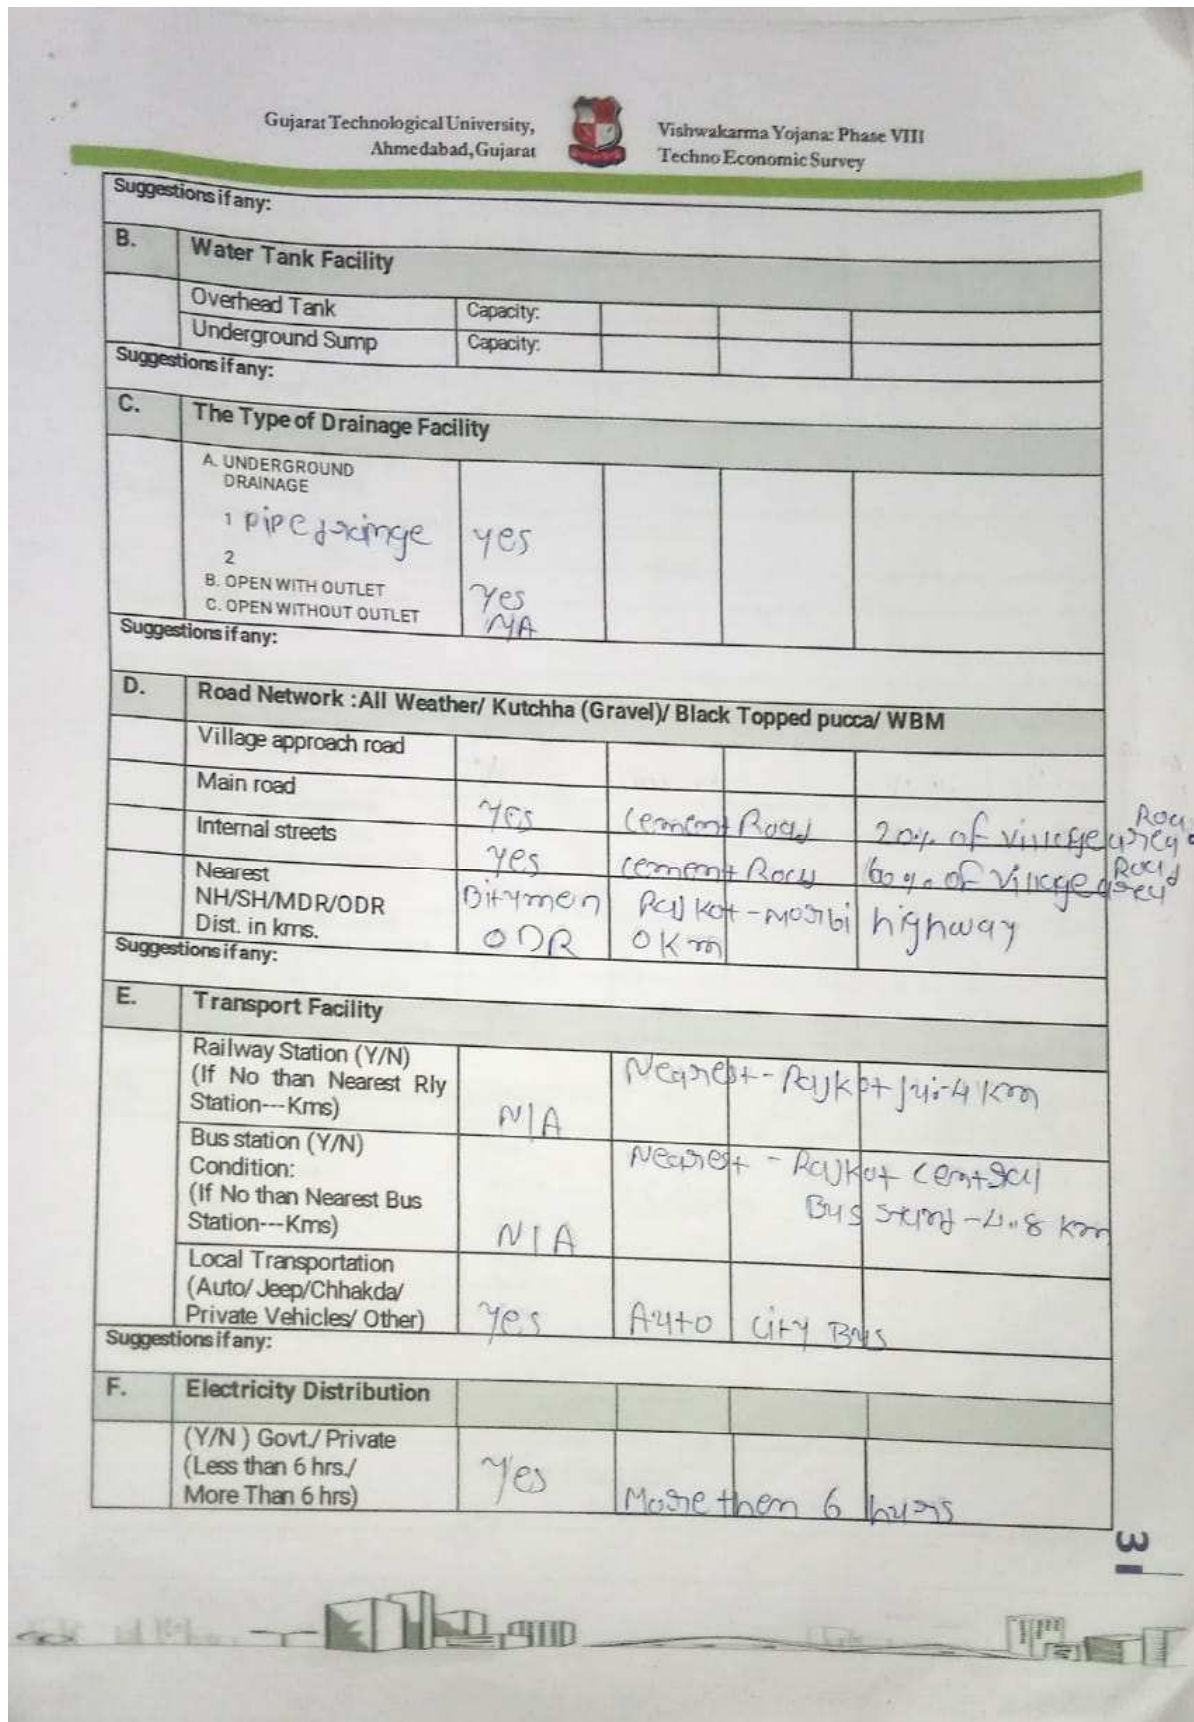 Gujarat Technological University,
Ahmedabad, Gujarat
Vishwakarma Yojana: Phase VIII
Techno Economic Survey
Suggestions if any:
B. Water Tank Facility
Overhead Tank Capacity:
Underground Sump Capacity:
Suggestions if any:
C. The Type of Drainage Facility
A. UNDERGROUND
DRAINAGE
1 pipe yes
2
B. OPEN WITH OUTLET yes
C. OPEN WITHOUT OUTLET N/A
Suggestions if any:
D. Road Network :All Weather/ Kutchha (Gravel)/ Black Topped pucca/ WBM
Village approach road
Main road yes cement Road 20% of village area Road
Internal streets yes cement Road 60%. of village area Road
Nearest
NH/SH/MDR/ODR Bitymen Rajkot-morbi highway
Dist. in kms. ODR 0Km
Suggestions if any:
E. Transport Facility
Railway Station (Y/N) Nearest - Rajkot
(If No than Nearest Rly
Station---Kms) N/A
Bus station (Y/N) Nearest - Rajkot central
Condition:
(If No than Nearest Bus Bus stand - 4.8 km
Station---Kms) N/A
Local Transportation
(Auto/ Jeep/Chhakda/
Private Vehicles/ Other) yes Auto city Bus
Suggestions if any:
F. Electricity Distribution
(Y/N ) Govt./ Private
(Less than 6 hrs./ yes
More Than 6 hrs) More then 6 hurs
31